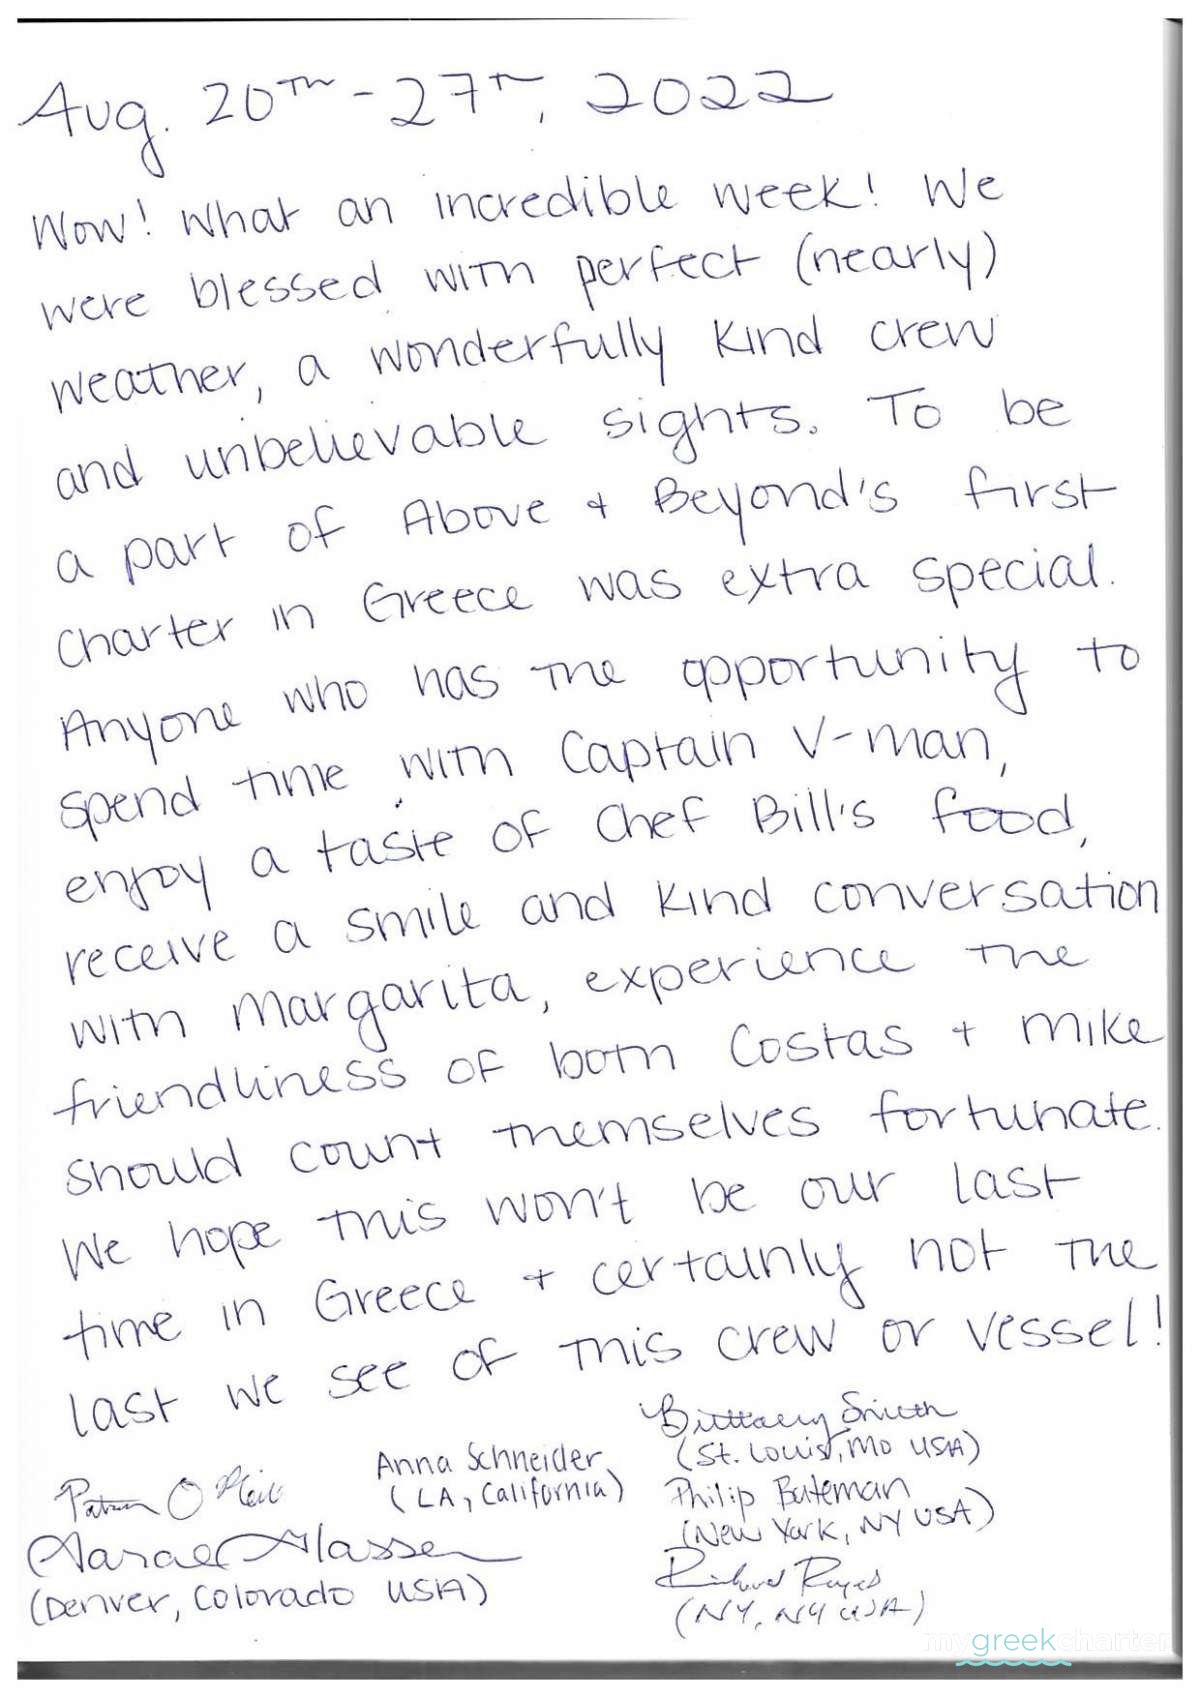 Aug. 20TH - 27TH, 2022
Wow! What an incredible week! We
were blessed with perfect (nearly)
weather, a wonderfully kind crew
and unbelievable sights. To be
a part of Above + Beyond's first
charter in Greece was extra special.
Anyone who has the opportunity to
spend time with Captain V-man,
enjoy a taste of Chef Bill's food,
receive a smile and kind conversation
with Margarita, experience the
friendliness of both Costas + Mike
should count themselves fortunate.
We hope this won't be our last
time in Greece + certainly not the
last we see of this crew or vessel!
Brittany Smith
(St. Louis, MO USA)
Anna Schneider
(LA, California)
Philip Bateman
(New York, NY USA)
(Denver, Colorado USA)
(NY, NY USA)
mygreekcharter